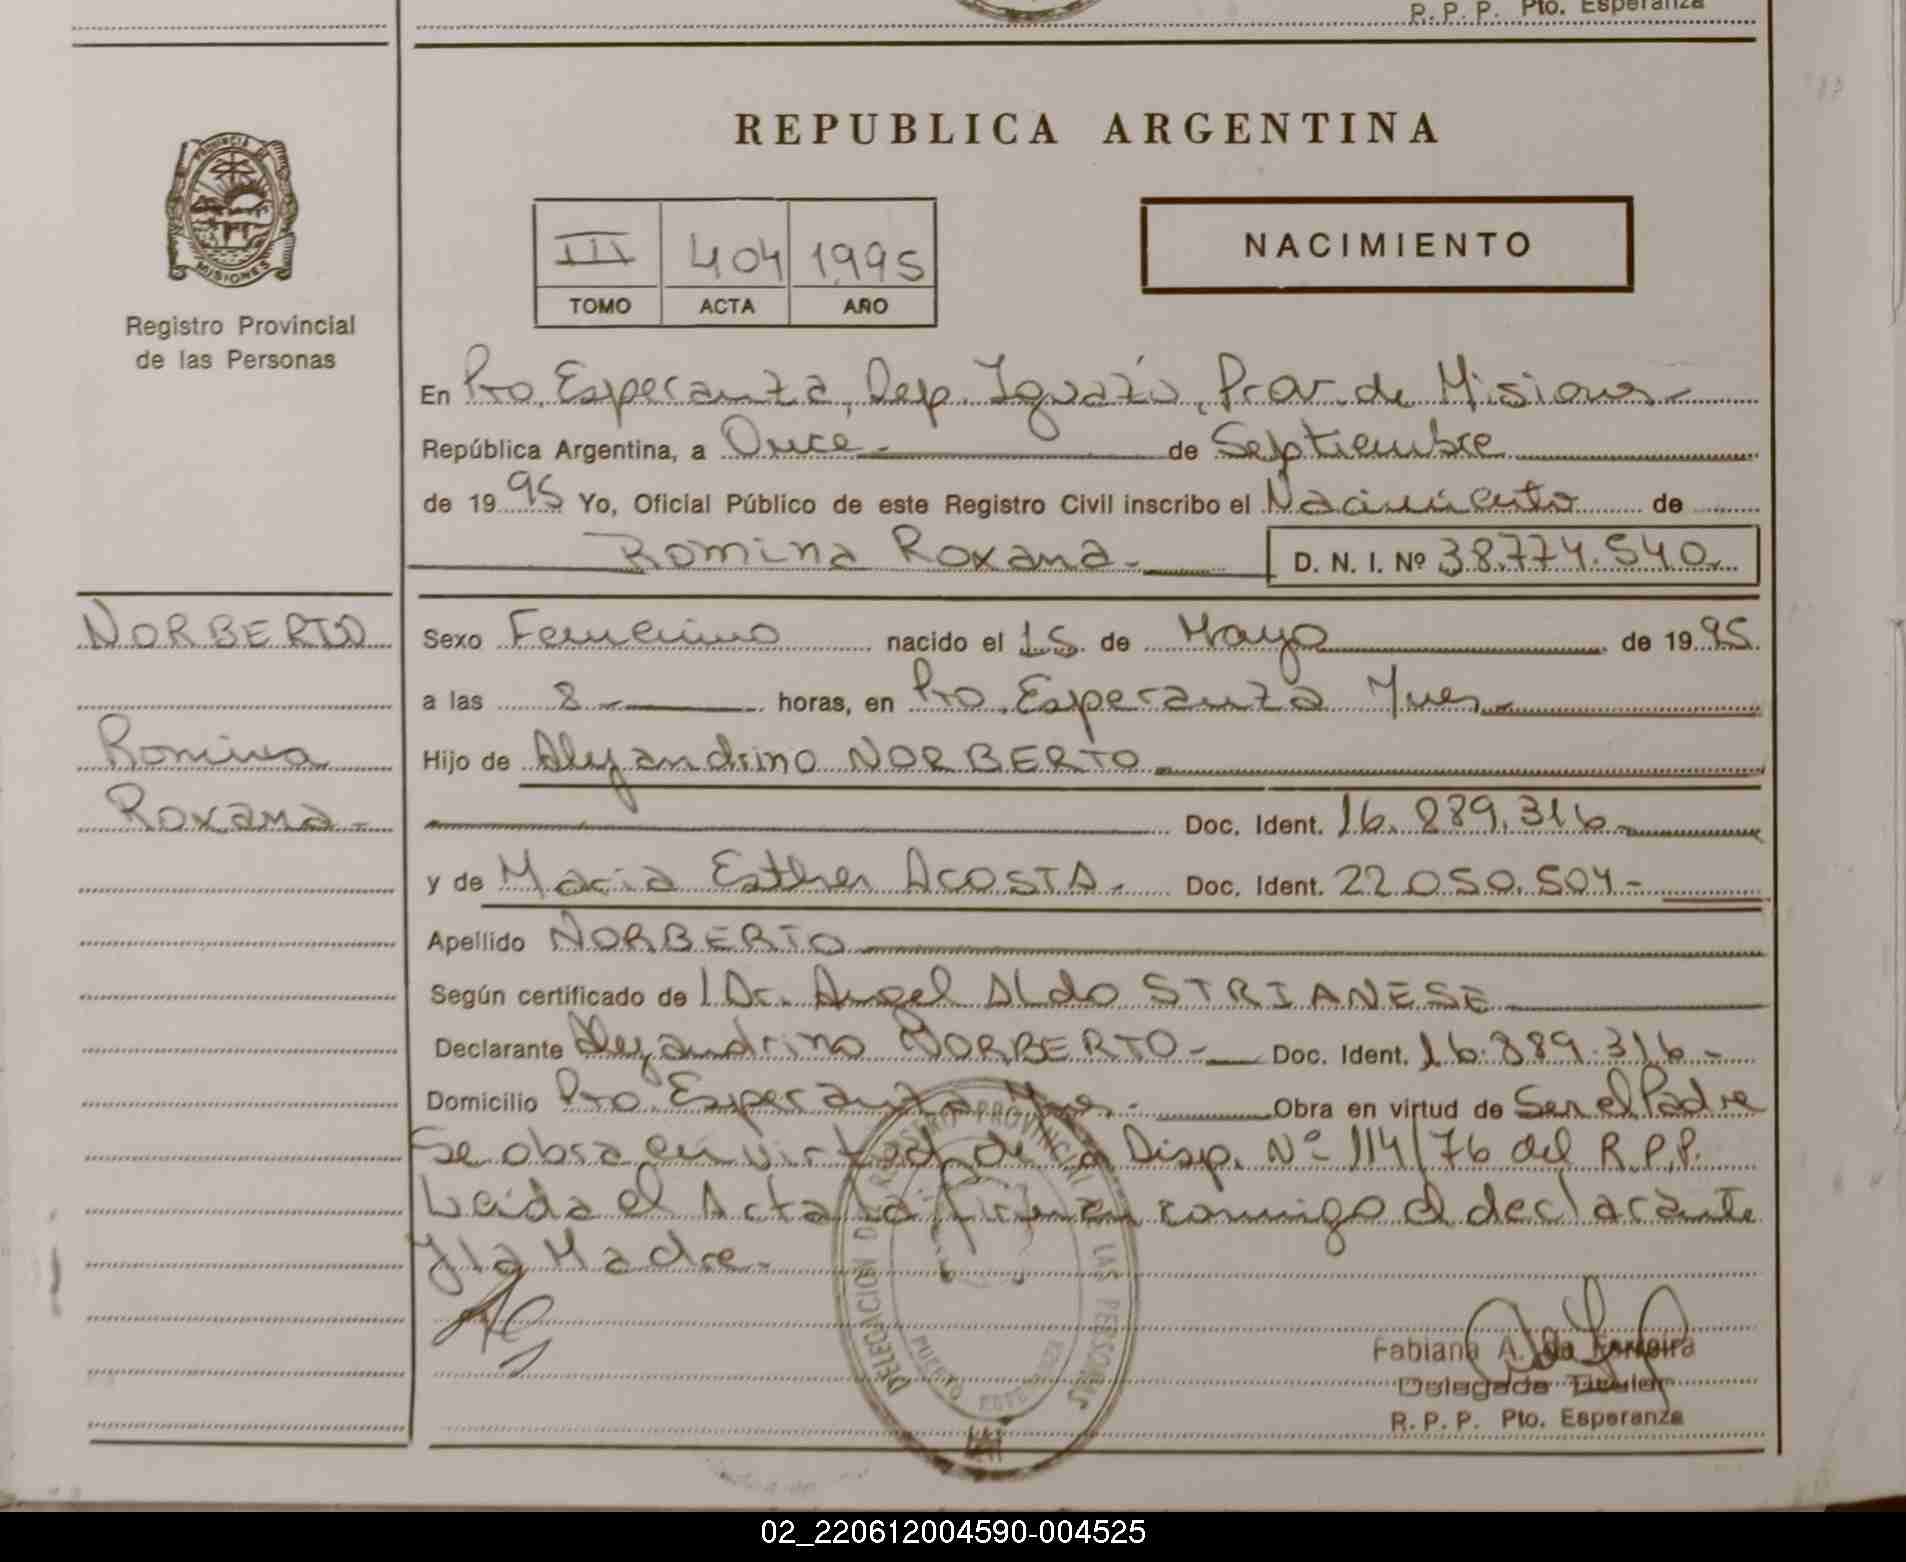 R. P. P. Pto. Esperanza
REPUBLICA ARGENTINA
PROVINCIA DE MISIONES
Registro Provincial
de las Personas
III 404 1995
TOMO ACTA AÑO
NACIMIENTO
En Pto. Esperanza, Dep. Iguazú, Prov. de Misiones
República Argentina, a Once de Septiembre
de 1995 Yo, Oficial Público de este Registro Civil inscribo el Nacimiento de
Romina Roxana D. N. I. Nº 38.774.540
NORBERTO
Romina
Roxana
Sexo Femenino nacido el 15 de Mayo de 1995
a las 8 horas, en Pto. Esperanza Mnes
Hijo de Alejandrino NORBERTO
Doc. Ident. 16.889.316
y de Maria Esther ACOSTA Doc. Ident. 22.050.504
Apellido NORBERTO
Según certificado de Dr. Angel Aldo STRIANESE
Declarante Alejandrino NORBERTO Doc. Ident. 16.889.316
Domicilio Pto. Esperanza Mnes. Obra en virtud de Ser el Padre
Se obra en virtud de la Disp. Nº 114/76 del R.P.P.
Leída el Acta la firman conmigo el declarante
y la Madre.
DELEGACION DE REGISTRO PROVINCIAL DE LAS PERSONAS
PUERTO ESPERANZA
Fabiana A. da Ferreira
Delegada Titular
R. P. P. Pto. Esperanza
02_220612004590-004525